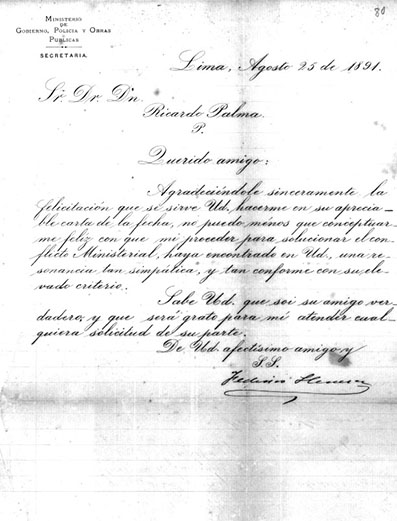 80
MINISTERIO
DE
GOBIERNO, POLICIA Y OBRAS
PUBLICAS
SECRETARIA.
Lima, Agosto 25 de 1891.
Sr. Dr. Dn.
Ricardo Palma.
P.
Querido amigo:
Agradeciéndole sinceramente la
felicitación que se sirve Ud. hacerme en su aprecia-
ble carta de la fecha, no puedo ménos que conceptuar-
me feliz con que mi proceder para solucionar el con-
flicto Ministerial, haya encontrado en Ud., una re-
sonancia tan simpática, y tan conforme con su ele-
vado criterio.
Sabe Ud. que soi su amigo ver-
dadero, y que será grato para mi atender cual-
quiera solicitud de su parte.
De Ud. afectísimo amigo y
S.S.
Federico